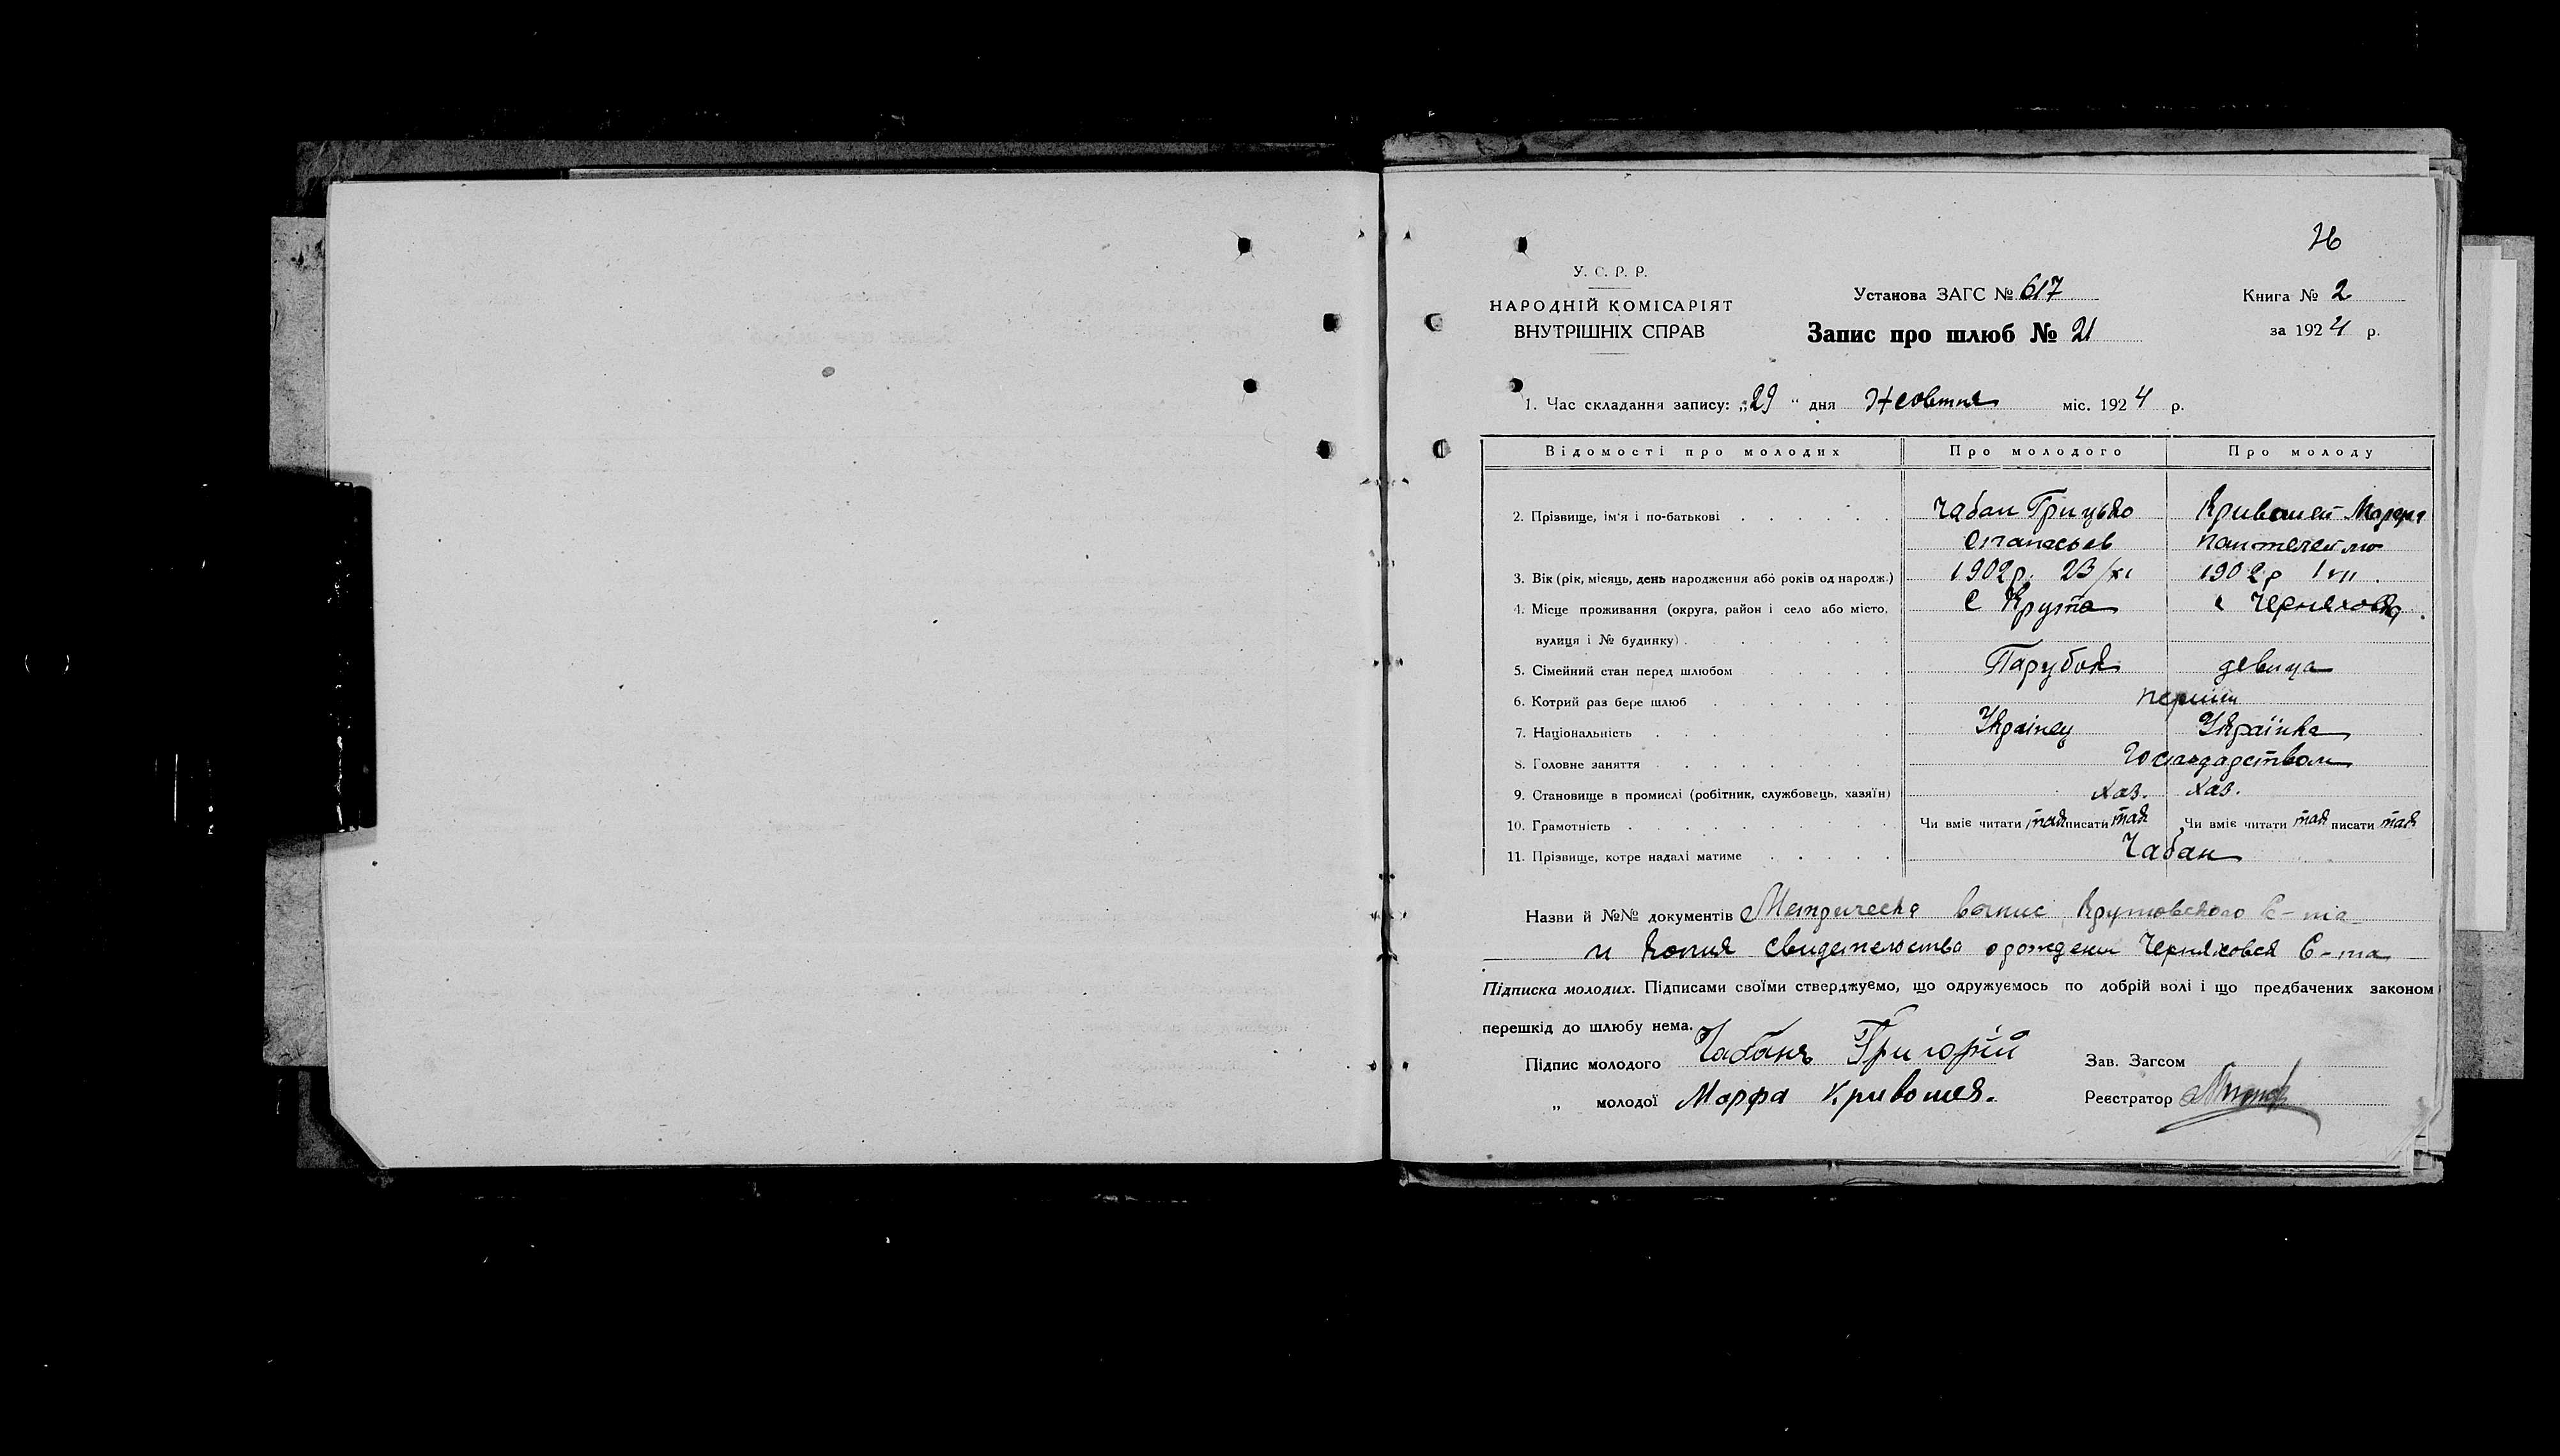 26
У. С. Р. Р.
НАРОДНІЙ КОМІСАРІЯТ
ВНУТРІШНІХ СПРАВ
Установа ЗАГС № 617
Запис про шлюб № 21
Книга № 2
за 1924 р.
1. Час складання запису: „29" дня Жовтня міс. 1924 р.
Відомості про молодих Про молодого Про молоду
2. Прізвище, ім'я і по-батькові Чабан Грицько Кривошей Марфа
Опанасьев
3. Вік (рік, місяць, день народження або років од народж.) 1902 р. 23/XI 1902 р 1 VII.
4. Місце проживання (округа, район і село або місто, с Крута с Черняховка
вулиця і № будинку)
5. Сімейний стан перед шлюбом Парубок девица
6. Котрий раз бере шлюб перший
7. Національність Українец Українка
8. Головне заняття Господарством
9. Становище в промислі (робітник, службовець, хазяїн) хаз. хаз.
10. Грамотність Чи вміє читати так писати так Чи вміє читати так писати так
11. Прізвище, котре надалі матиме Чабан
Назви й №№ документів Метрическа Крутовского С-та
и копия свидетельства о рождени Черняховск С-та
Підписка молодих. Підписами своїми стверджуємо, що одружуємось по добрій волі і що предбачених законом
перешкід до шлюбу нема.
Підпис молодого Чабанъ Григорій
Зав. Загсом
„ молодої Марфа Кривошея.
Реєстратор